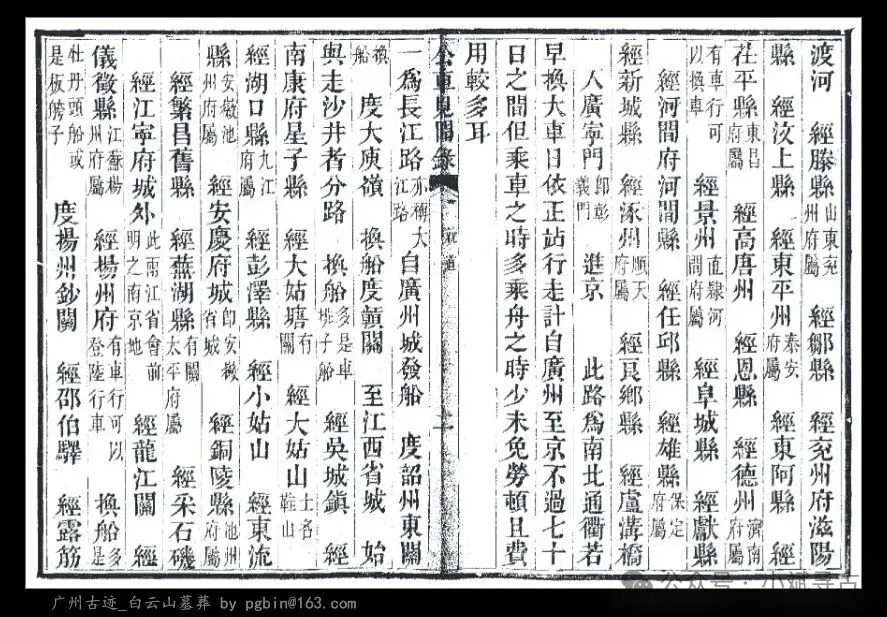 渡河　經滕縣山東兗州府屬　經鄒縣　經兗州府滋陽
縣　經汶上縣　經東平州泰安府屬　經東阿縣　經
茌平縣東昌府屬　經高唐州　經恩縣　經德州濟南府屬
有車行可以換車　經景州直隸河間府屬　經阜城縣　經獻縣
經河間府河間縣　經任邱縣　經雄縣保定府屬
經新城縣　經涿州順天府屬　經良鄉縣　經盧溝橋
入廣寧門即彰義門　進京　此路爲南北通衢若
早換大車日依正站行走計自廣州至京不過七十
日之間但乘車之時多乘舟之時少未免勞頓且費
用較多耳
公車見聞錄
一爲長江路亦稱大江路　自廣州城發船　度韶州東關
船　度大庾嶺　換船度贛關　至江西省城　始
與走沙井者分路　換船多是車排子船　經吳城鎮　經
南康府星子縣　經大姑塘有關　經大姑山土名鞋山
經湖口縣九江府屬　經彭澤縣　經小姑山　經東流
縣安徽池州府屬　經安慶府城即安徽省城　經銅陵縣池州府屬
經繁昌舊縣　經蕪湖縣有關太平府屬　經采石磯
經江寧府城外此兩江省會前明之南京地　經龍江關　經
儀徵縣江蘇揚州府屬　經揚州府有車行可以登陸行車　換船多是
牡丹頭船或是板艄子　度揚州鈔關　經邵伯驛　經露筋
公众号·小斌寻古
广州古迹_白云山墓葬 by pgbin@163.com